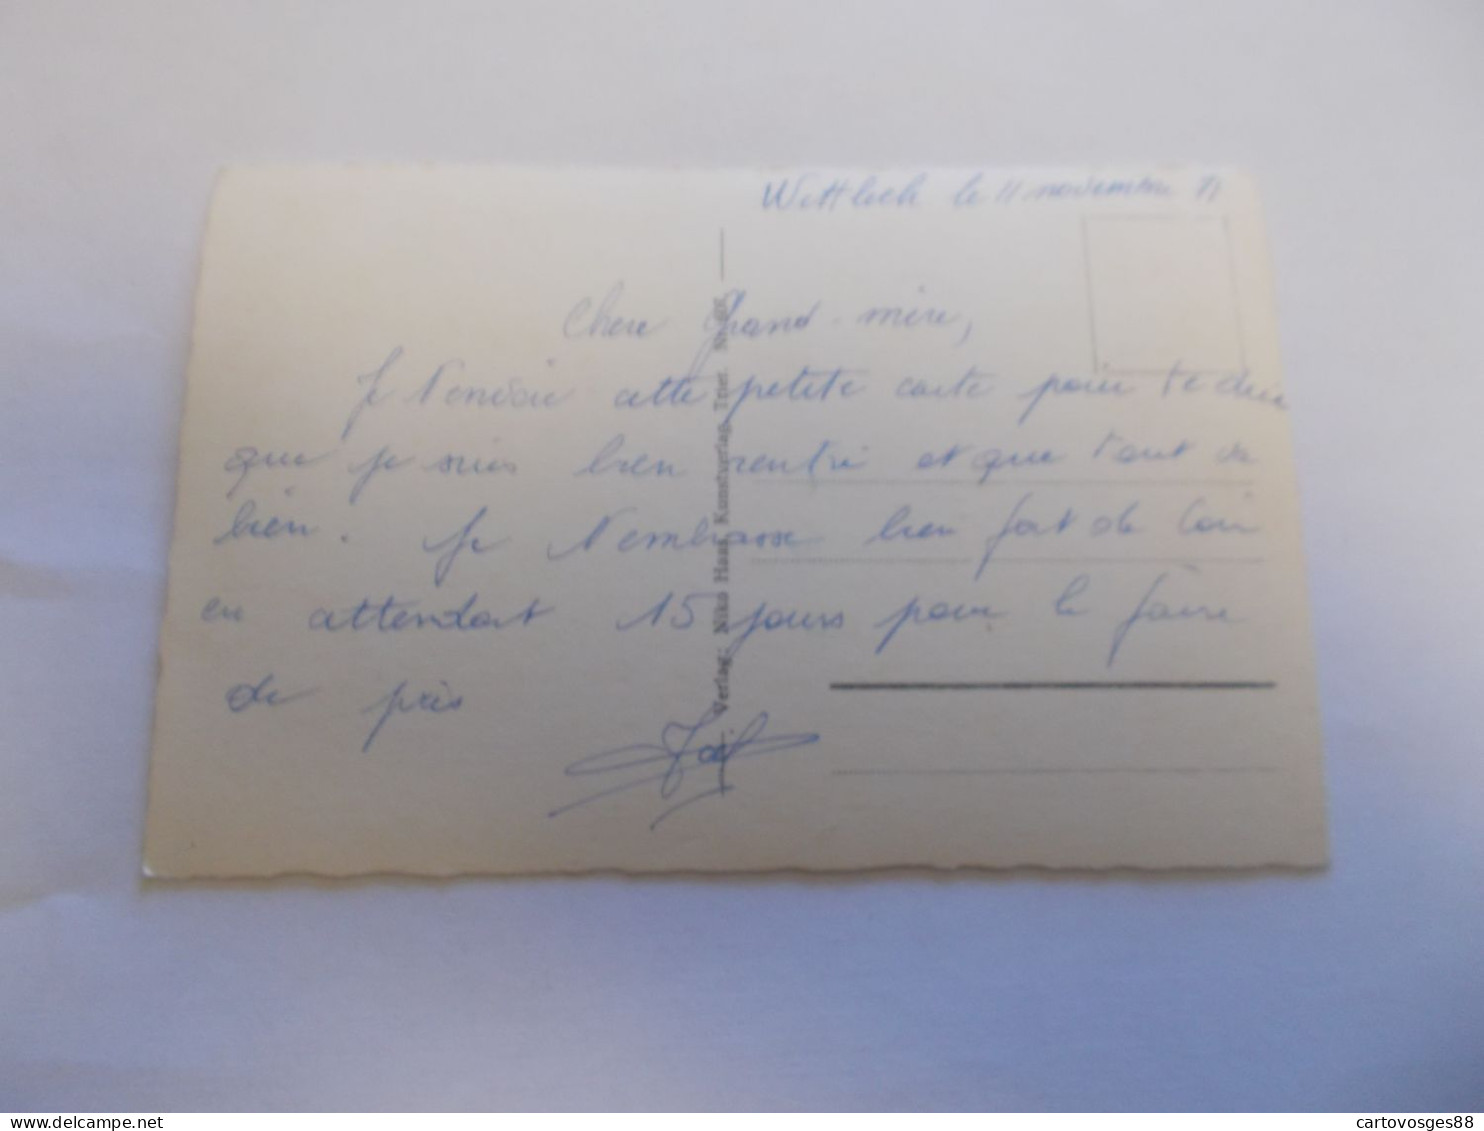 Wittlich le 11 novembre 71
Chere Grand-mère,
Je t'envoie cette petite carte pour te dire
que je suis bien rentré et que tout va
bien. Je t'embrasse bien fort de loin
en attendant 15 jours pour le faire
de près
Joël
Verlag: Niko Haas, Kunstverlag, Trier.
delcampe.net
cartovosges88